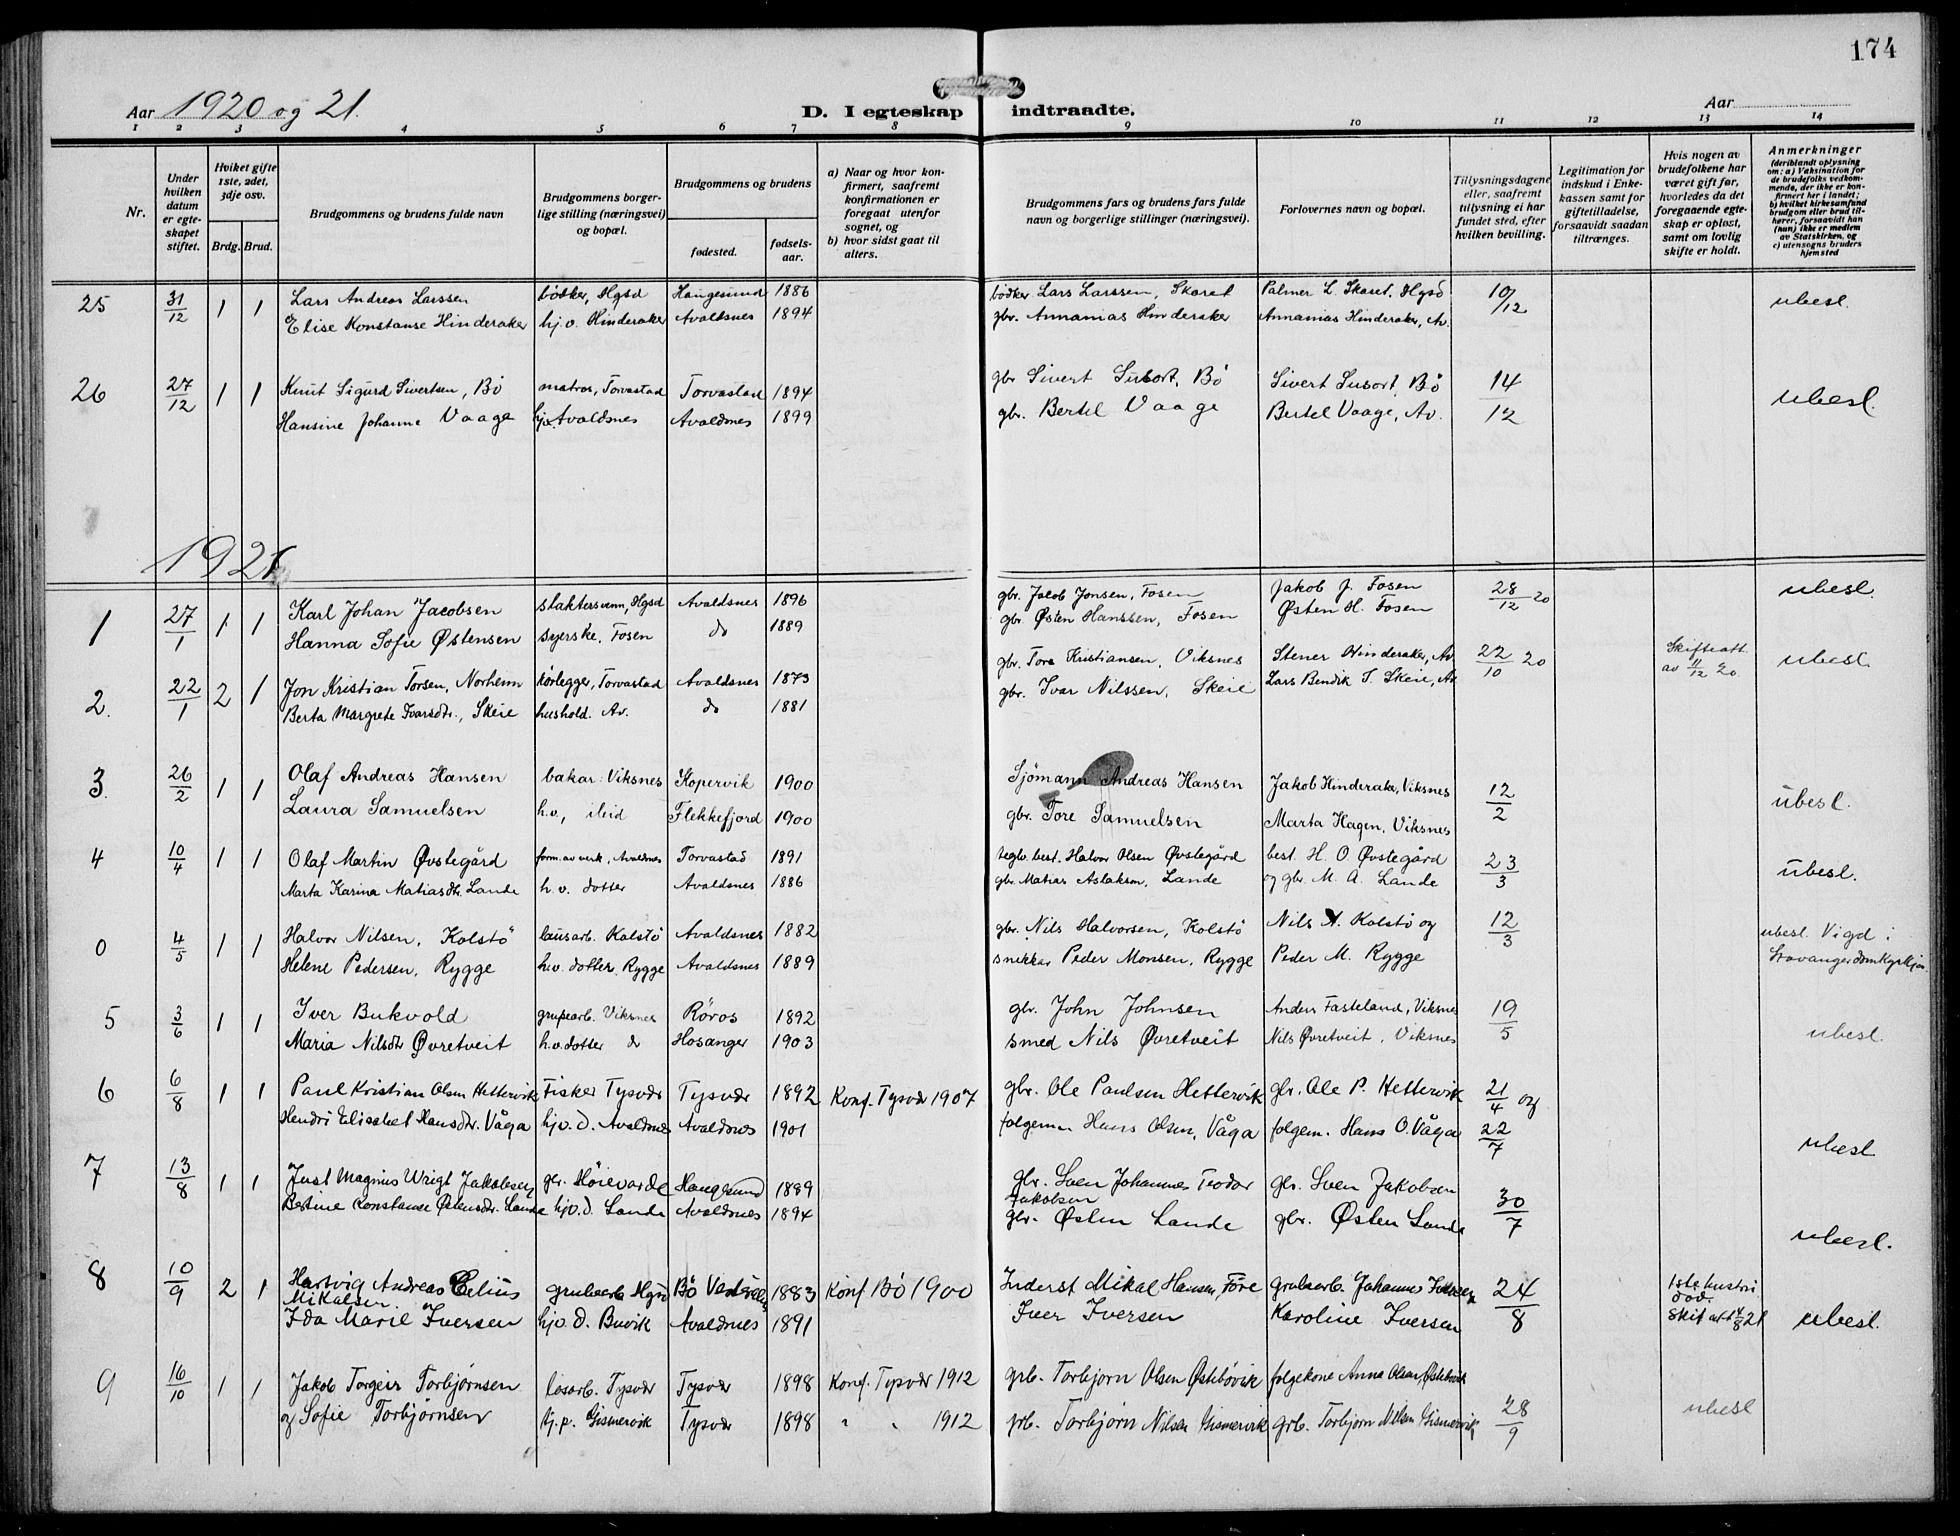 174
Aar 1920 og 21. D. I egteskap indtraadte. Aar
1 2 3 4 5 6 7 8 9 10 11 12 13 14
Nr.
Under hvilken datum er egteskapet stiftet.
Hviket gifte 1ste, 2det, 3dje osv.
Brdg. Brud.
Brudgommens og brudens fulde navn
Brudgommens borgerlige stilling (næringsvei) og bopæl.
Brudgommens og brudens
fødested. fødselsaar.
a) Naar og hvor konfirmert, saafremt konfirmationen er foregaat utenfor sognet, og
b) hvor sidst gaat til alters.
Brudgommens fars og brudens fars fulde navn og borgerlige stillinger (næringsvei).
Forlovernes navn og bopæl.
Tillysningsdagene eller, saafremt tillysning ei har fundet sted, efter hvilken bevilling.
Legitimation for indskud i Enkekassen samt for giftetilladelse, forsaavidt saadan tiltrænges.
Hvis nogen av brudefolkene har været gift før, hvorledes da det foregaaende egteskap er opløst, samt om lovlig skifte er holdt.
Anmerkninger
(deriblandt oplysning om: a) Vaksination for de brudefolks vedkommende, der ikke er konfirmert her i landet; b) hvilket kirkesamfund brudgom eller brud tilhører, forsaavidt han (hun) ikke er medlem av Statskirken, og c) utensogns bruders hjemsted
25 31/12 1 1 Lars Andreas Larssen bødker, Hgsd Haugesund 1886 bødker Lars Larssen, Skaret Palmer L. Skaret, Hgsd 10/12 ubesl.
Elise Konstanse Hinderaker hj.v. Hinderaker Avaldsnes 1894 gbr. Annanias Hinderaker Annanias Hinderaker, Av.
26 27/12 1 1 Knut Sigurd Sivertsen, Bö matros, Torvastad Torvastad 1894 gbr Sivert Bö Sivert Bö 14/12 ubesl.
Hansine Johanne Vaage Avaldsnes Avaldsnes 1899 gbr. Bertel Vaage Bertel Vaage, Av.
1921
1 27/1 1 1 Karl Johan Jacobsen slaktersvenn, Hgsd Avaldsnes 1896 gbr. Jacob Jonsen, Fosen Jakob J. Fosen 28/12 20 ubesl.
Hanna Sofie Østensen syerske, Fosen do 1889 gbr. Østen Hanssen, Fosen Østen H. Fosen
2. 22/1 2 1 Jon Kristian Torsen, Norheim Torvastad Avaldsnes 1873 gbr. Tore Kristiansen, Viksnes Stener Hinderaker, Av 22/10 20 Skifteatt. av 11/12 20 ubesl.
Berta Margrete Ivarsdtr., Skeie hushold. Av. do 1881 gbr. Ivar Nilssen, Skeie Lars Bendik T. Skeie, Av
3. 26/2 1 1 Olaf Andreas Hansen bakar Viksnes Kopervik 1900 Sjömann Andreas Hansen Jakob Hinderaker, Viksnes 12/2 ubesl.
Laura Samuelsen h.v., Flekkefjord 1900 gbr. Tore Samuelsen Marta Hagen, Viksnes
4 10/4 1 1 Olaf Martin Øvstegård Avaldnes Torvastad 1891 teglv. best. Halvor Olsen Øvstegård best. H. O. Øvstegård 23/3 ubesl.
Marta Karina Matiasdtr. Lande h.v. dotter Avaldsnes 1886 gbr. Matias Aslaksen, Lande og gbr. M. A. Lande
0 4/5 1 1 Halvor Nilsen, Kolstö lausarb. Kolstö Avaldsnes 1882 gbr. Nils Halvorsen, Kolstö Nils Kolstö og 12/3 ubesl. Vigd i
Helene Pedersen, Rygge h.v. dotter, Rygge Avaldsnes 1889 snikkar Peder Monsen, Rygge Peder M. Rygge Stavanger domkyrkja
5 3/6 1 1 Iver Bukvold grupearb. Viksnes Röros 1892 gbr. John Johnsen Anders Fasteland, Viksnes 19/5 ubesl.
Maria Nilsdtr Øvretveit h.v. dotter do Hosanger 1903 smed Nils Øvretveit Nils Øvretveit, Viksnes
6 6/8 1 1 Paul Kristian Olsen Hettervik Fisker Tysvær Tysvær 1892 Konf. Tysvær 1907 gbr. Ole Paulsen Hettervik gbr. Ole P. Hettervik 21/4 og
Elisabet Hansdtr. Våga hjv.d. Avaldsnes Avaldsnes 1901 folgem. Hans Olsen, Våga folgem. Hans O. Våga 22/7 ubesl
7 13/8 1 1 Just Magnus Wrigt Jakobsen gbr. Höievarde Haugesund 1889 gbr. Sven Johannes Teodor Jakobsen gbr. Sven Jakobsen 30/7
Bertine Konstanse Østensdtr. Lande hjv.d. Lande Avaldsnes 1894 gbr. Østen Lande gbr. Østen Lande ubesl.
8 10/9 2 1 Hartvig Andreas Celius Mikalsen grubearb Hgsd Bö Vesterålen 1883 Konf. Bö 1900 Inderst Mikal Hansen, Före grubearb. Johannes 24/8 1ste hustru död. Skif. att 4/8 21 ubesl.
Ida Marie Iversen hjv.d. Buvik Avaldnes 1891 Iver Iversen Karoline Iversen
9 16/10 1 1 Jakob Torgeir Torbjørnsen løsarb. Tysvær Tysvær 1898 Konf. Tysvær 1912 grb. Torbjørn Olsen Østebövik folgekone Anna Olsen, Østebövik 28/9 ubesl
og Sofie Torbjørnsen hj.p. Gismervik Tysvær 1898 " " 1912 grb. Torbjørn Nilsen Gismervik grb. Torbjørn Nilsen Gismervik